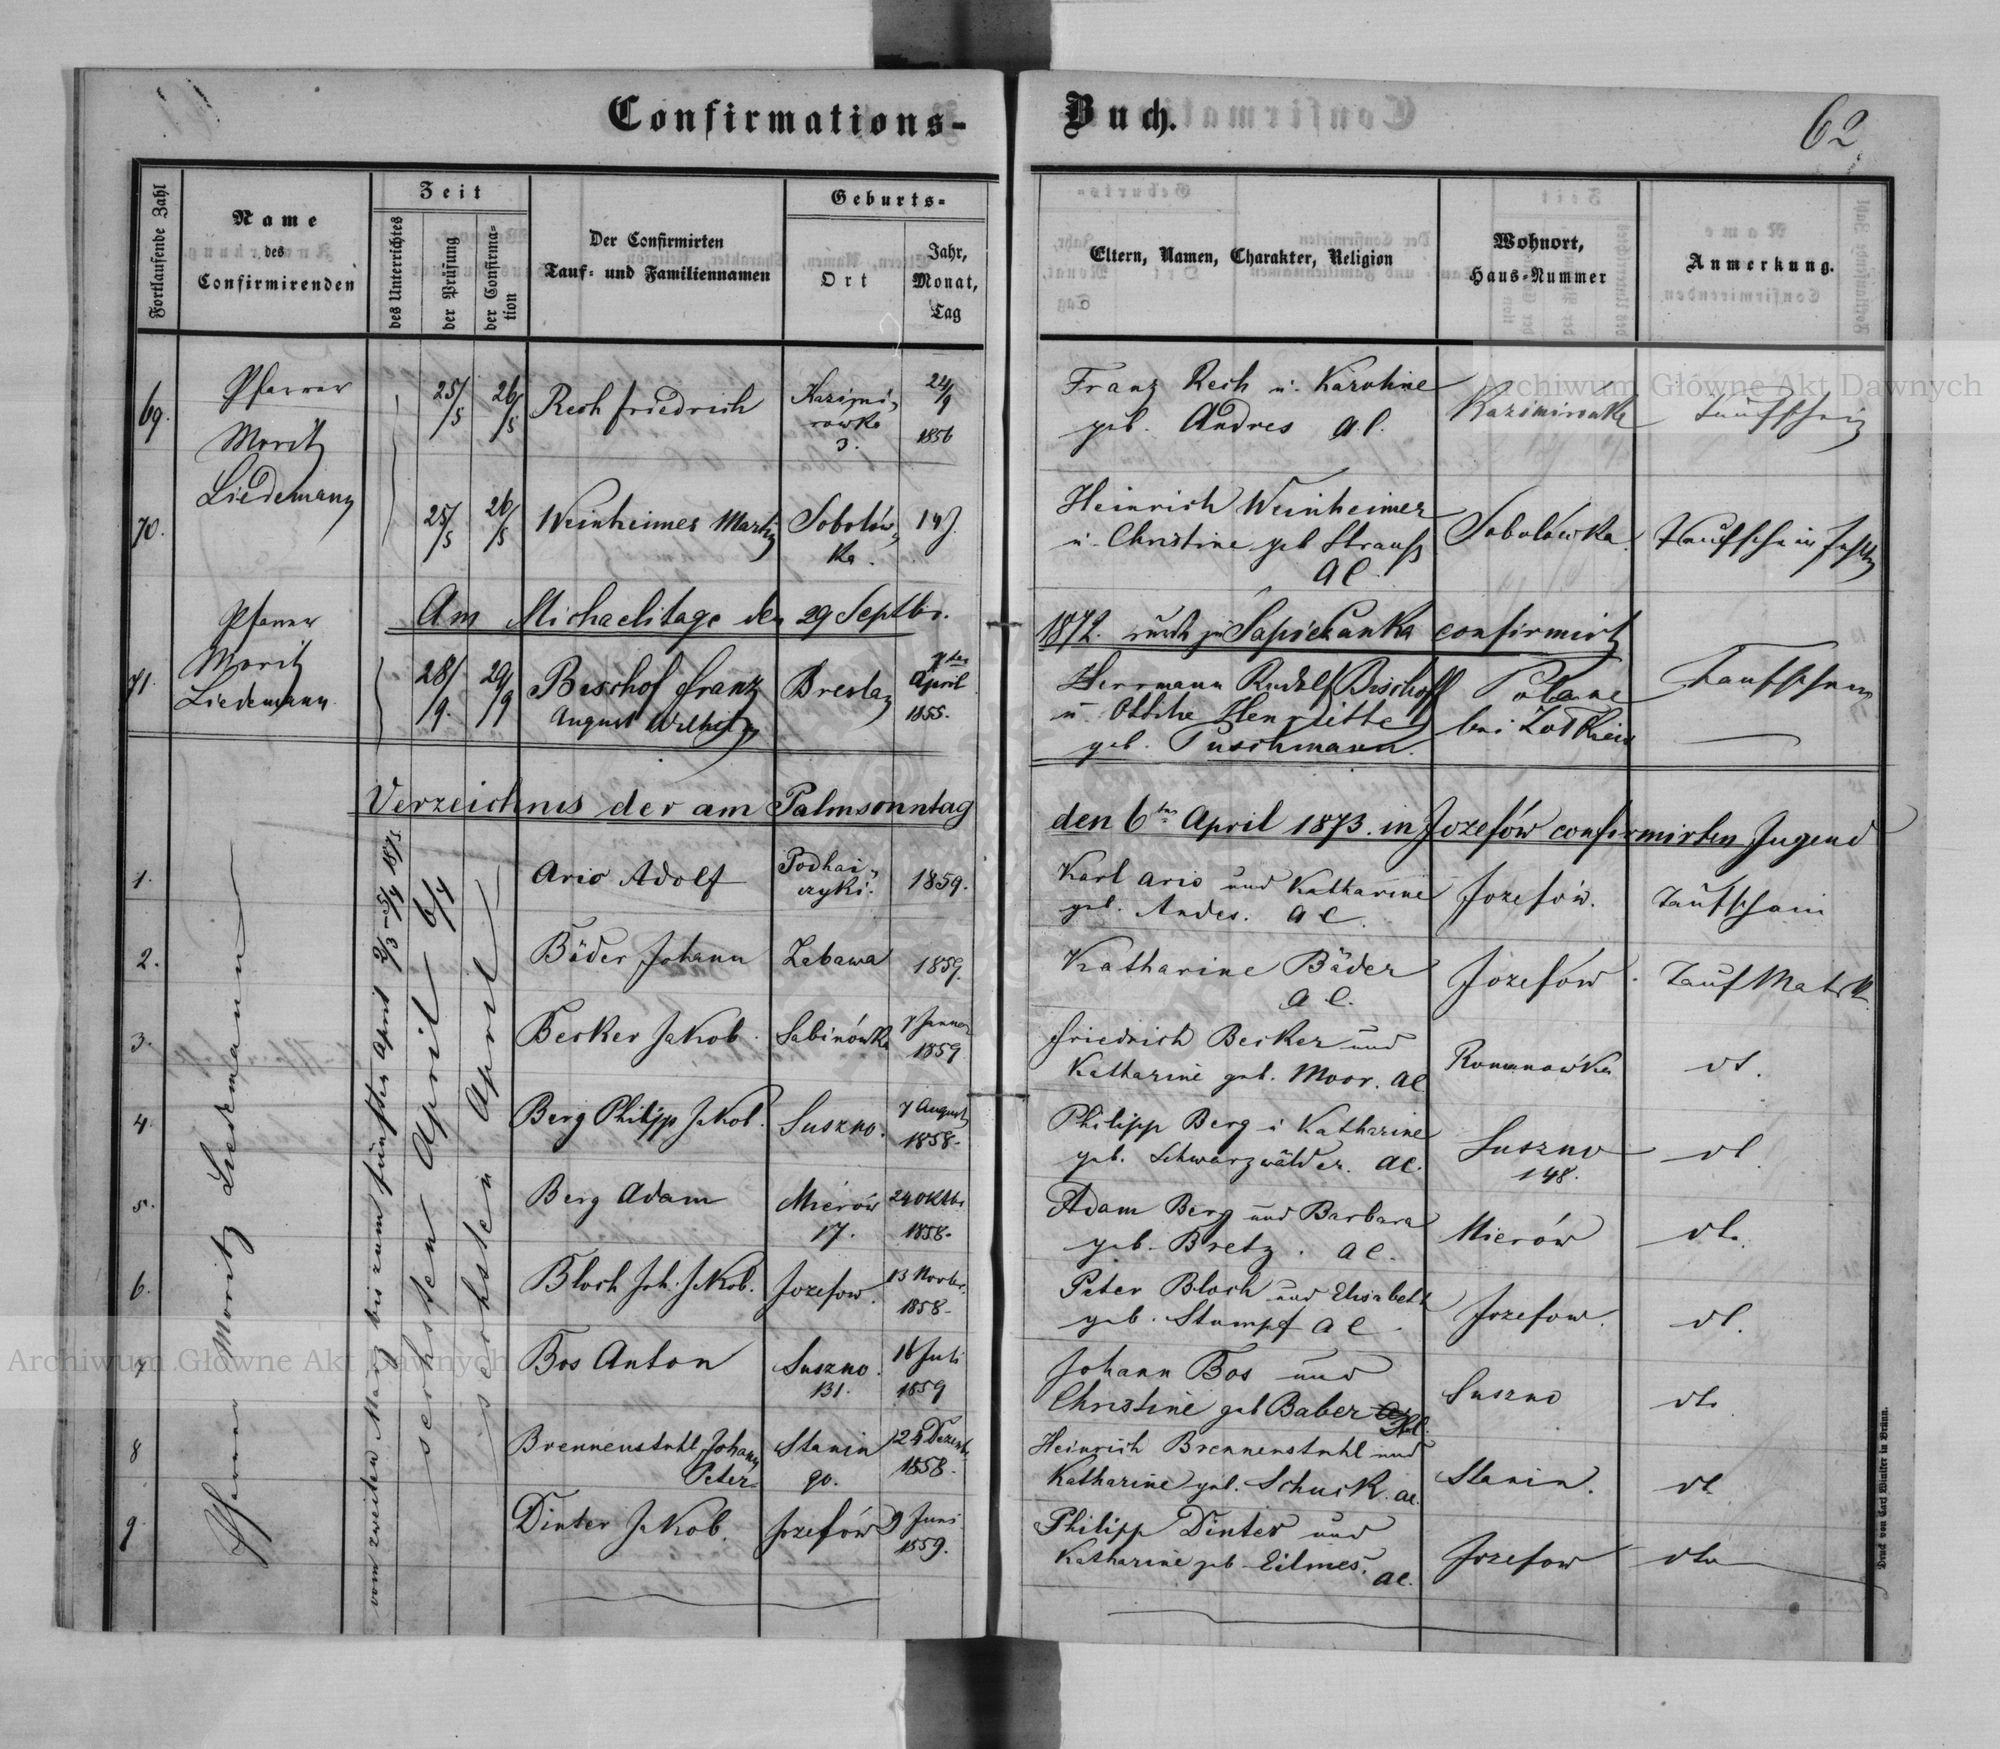 Confirmations-Buch.
62
Fortlaufende Zahl
Name
des
Confirmirenden
Zeit
des Unterrichtes
der Prüfung
der Confirma-
tion
Der Confirmirten
Tauf- und Familiennamen
Geburts-
Ort
Jahr,
Monat,
Tag
Eltern, Namen, Charakter, Religion
Wohnort,
Haus-Nummer
Anmerkung.
69.
Pfarrer
Moritz
Liedemann
25/5
26/5
Rech Friedrich
Kazimi-
rowka
3.
24/9
1856
Franz Rech u. Karoline
geb. Andres AC.
Kazimirowka
Taufschein
70.
25/5
26/5
Weinheimer Martin
Sobolów-
ka.
14 J.
Heinrich Weinheimer
u. Christine geb Strauss
AC.
Sobolówka.
Taufschein
Am Michaelitage den 29 Septbr. 1872. zu Sapiezanka confirmirt
71.
Pfarrer
Moritz
Liedemann
28/9.
29/9
Bischof Franz
August Wilhelm
Breslau
7ten
April
1855.
Herrmann Rudolf Bischoff
u. Ottilie Henriette
geb. Puschmann.
Polane
bei Zolkiew
Taufschein
Verzeichnis der am Palmsonntag den 6ten April 1873. in Jozefów confirmirten Jugend
Pfarrer Moritz Liedemann
vom zweiten März bis zum fünften April 2/3 - 5/4 1873.
sechsten April 6/4
sechsten April
1.
Ario Adolf
Podhai-
czyki.
1859.
Karl Ario und Katharine
geb. Andes. AC.
Jozefów.
Taufschein
2.
Bäder Johann
Zabawa
1859.
Katharine Bäder
AC.
Jozefów.
Tauf Matrik
3.
Becker Jakob.
Sabinówka
7 Januar
1859
Friedrich Becker und
Katharine geb. Moor. AC
Romanówka
dt.
4.
Berg Philipp Jakob.
Suszno.
7 August
1858.
Philipp Berg u Katharine
geb. Schwarzwälder. AC.
Suszno
148.
dt.
5.
Berg Adam
Mierów
17.
24 Oktbr
1858.
Adam Berg und Barbara
geb. Bretz. AC.
Mierów
dto.
6.
Bloch Joh. Jakob.
Jozefow.
13 Novbr.
1858.
Peter Bloch und Elisabeth
geb. Stumpf AC.
Jozefow.
dt.
7
Bos Anton
Suszno.
131.
16 Juli
1859
Johann Bos und
Christine geb Baber
Suszno
dto
8
Brennenstuhl Johann
Peter
Stanin
90.
25 Dezemb.
1858.
Heinrich Brennenstuhl und
Katharine geb. Schuck. AC.
Stanin.
dt
9
Dinter Jakob.
Jozefów
9 Juni
1859.
Philipp Dinter und
Katharine geb. Eilmes. AC.
Jozefow
dto
Druck von Carl Winiker in Brünn.
Archiwum Główne Akt Dawnych
Archiwum Główne Akt Dawnych